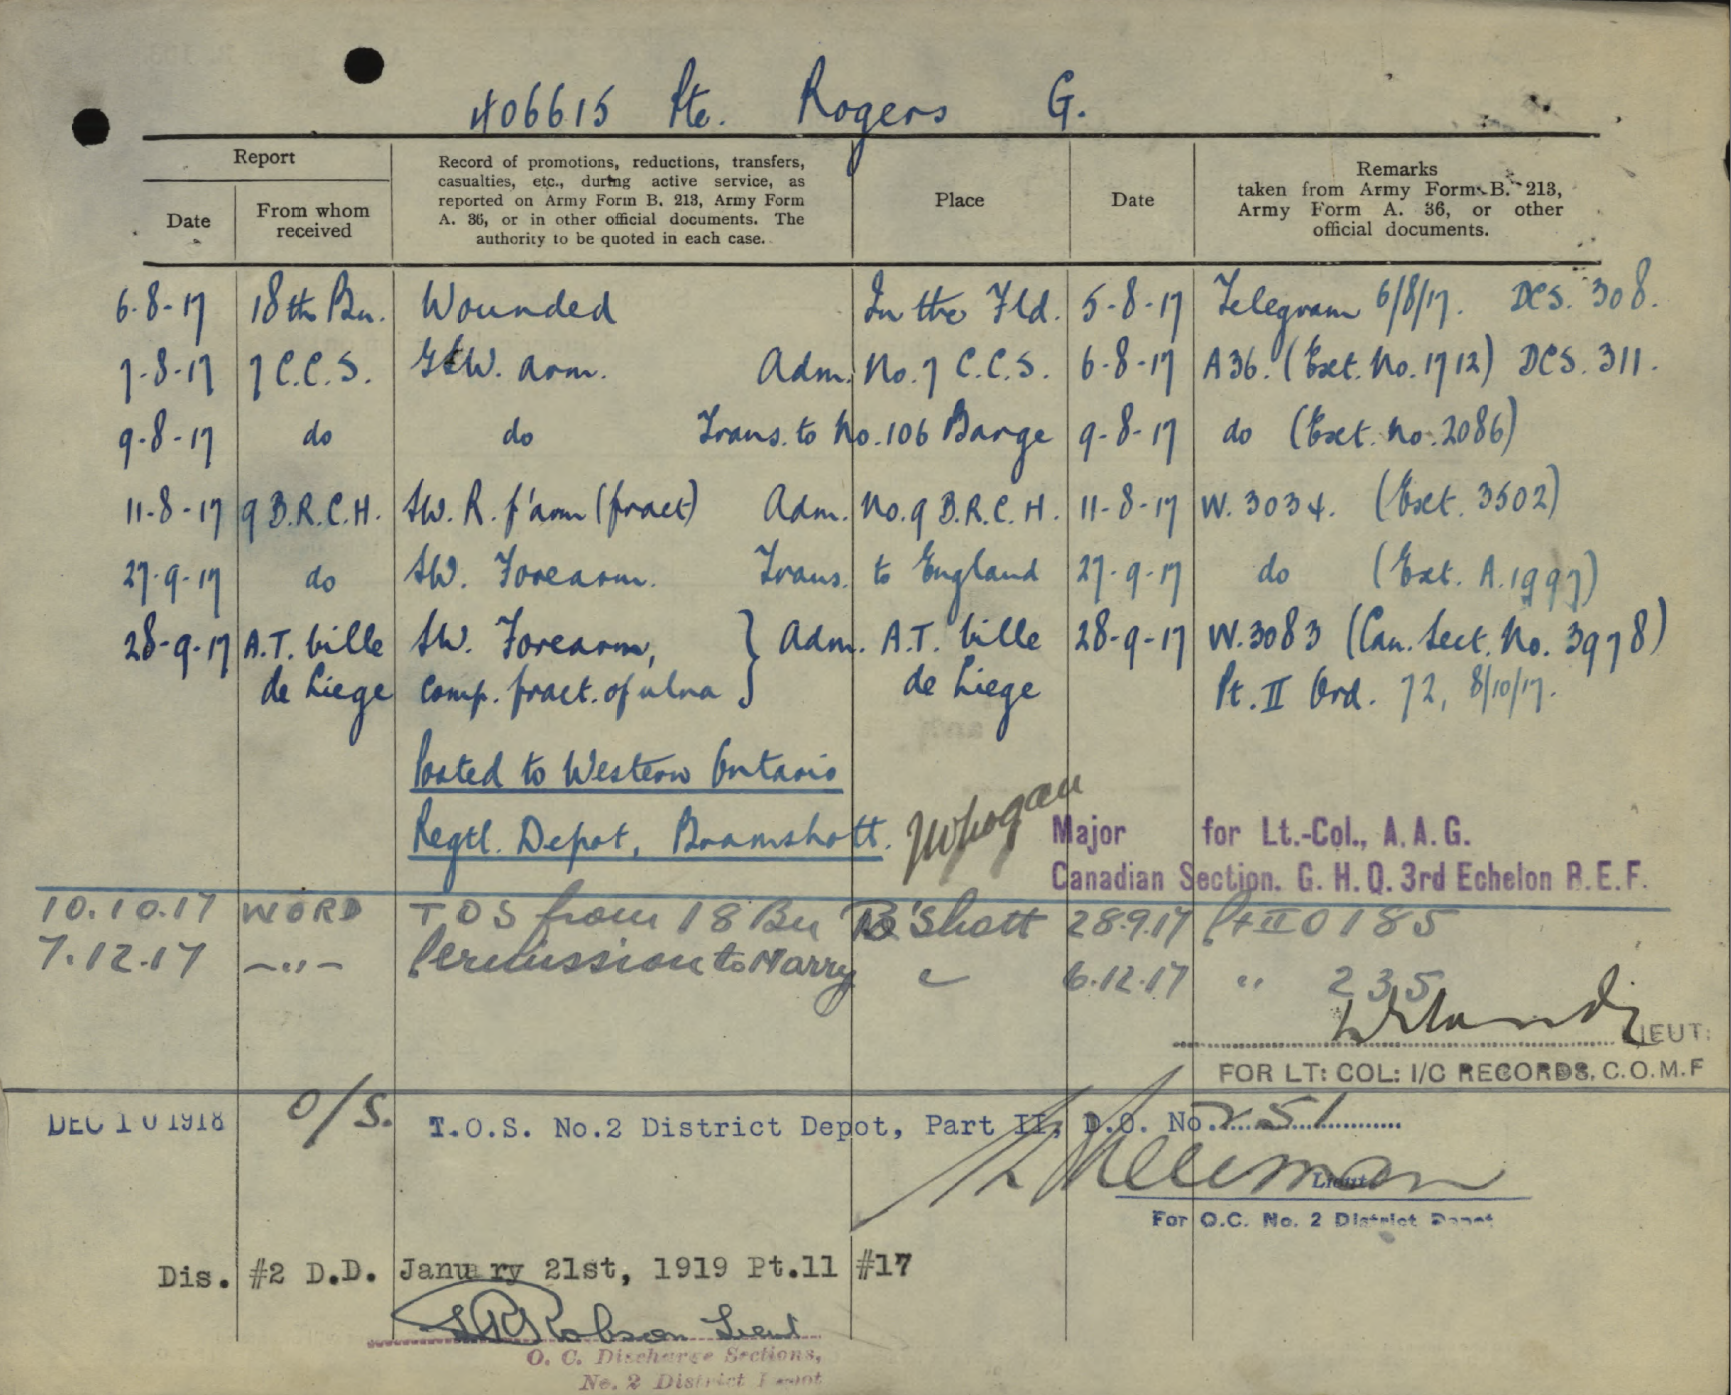 406615 Pte. Rogers G.
Report
Date
From whom received
Record of promotions, reductions, transfers,
casualties, etc., during active service, as
reported on Army Form B. 213, Army Form
A. 36, or in other official documents. The
authority to be quoted in each case.
Place
Date
Remarks
taken from Army Form B. 213,
Army Form A. 36, or other
official documents.
6-8-17 18th Bn. Wounded In the Fld. 5-8-17 Telegram 6/8/17. DCS. 308.
7-8-17 7 C.C.S. GSW. arm. Adm. No. 7 C.C.S. 6-8-17 A36. (Ext. No. 1712) DCS. 311.
9-8-17 do do Trans. to No. 106 Barge 9-8-17 do (Ext. No. 2086)
11-8-17 9 B.R.C.H. SW. R. f'arm (fract) Adm. No. 9 B.R.C.H. 11-8-17 W. 3034. (Ext. 3502)
27-9-17 do SW. Forearm. Trans. to England 27-9-17 do (Ext. A. 1997)
28-9-17 A.T. Ville SW. Forearm, } Adm. A.T. Ville 28-9-17 W. 3083 (Can. Sect. No. 3978)
de Liege comp. fract. of ulna de Liege Pt. II Ord. 72, 8/10/17.
Posted to Western Ontario
Regtl. Depot, Bramshott.
Major for Lt.-Col., A.A.G.
Canadian Section. G. H. Q. 3rd Echelon B.E.F.
10.10.17 WORD TOS from 18 Bn B'Shott 28.9.17 Pt II O 185
7.12.17 —"— Permission to Marry " 6.12.17 " 235
LIEUT:
FOR LT: COL: I/C RECORDS. C.O.M.F
DEC 10 1918 O/S. T.O.S. No.2 District Depot, Part II, D.O. No. 251
Lieut
For O.C. No. 2 District Depot
Dis. #2 D.D. January 21st, 1919 Pt.11 #17
Robson Lieut
O. C. Discharge Sections,
No. 2 District Depot